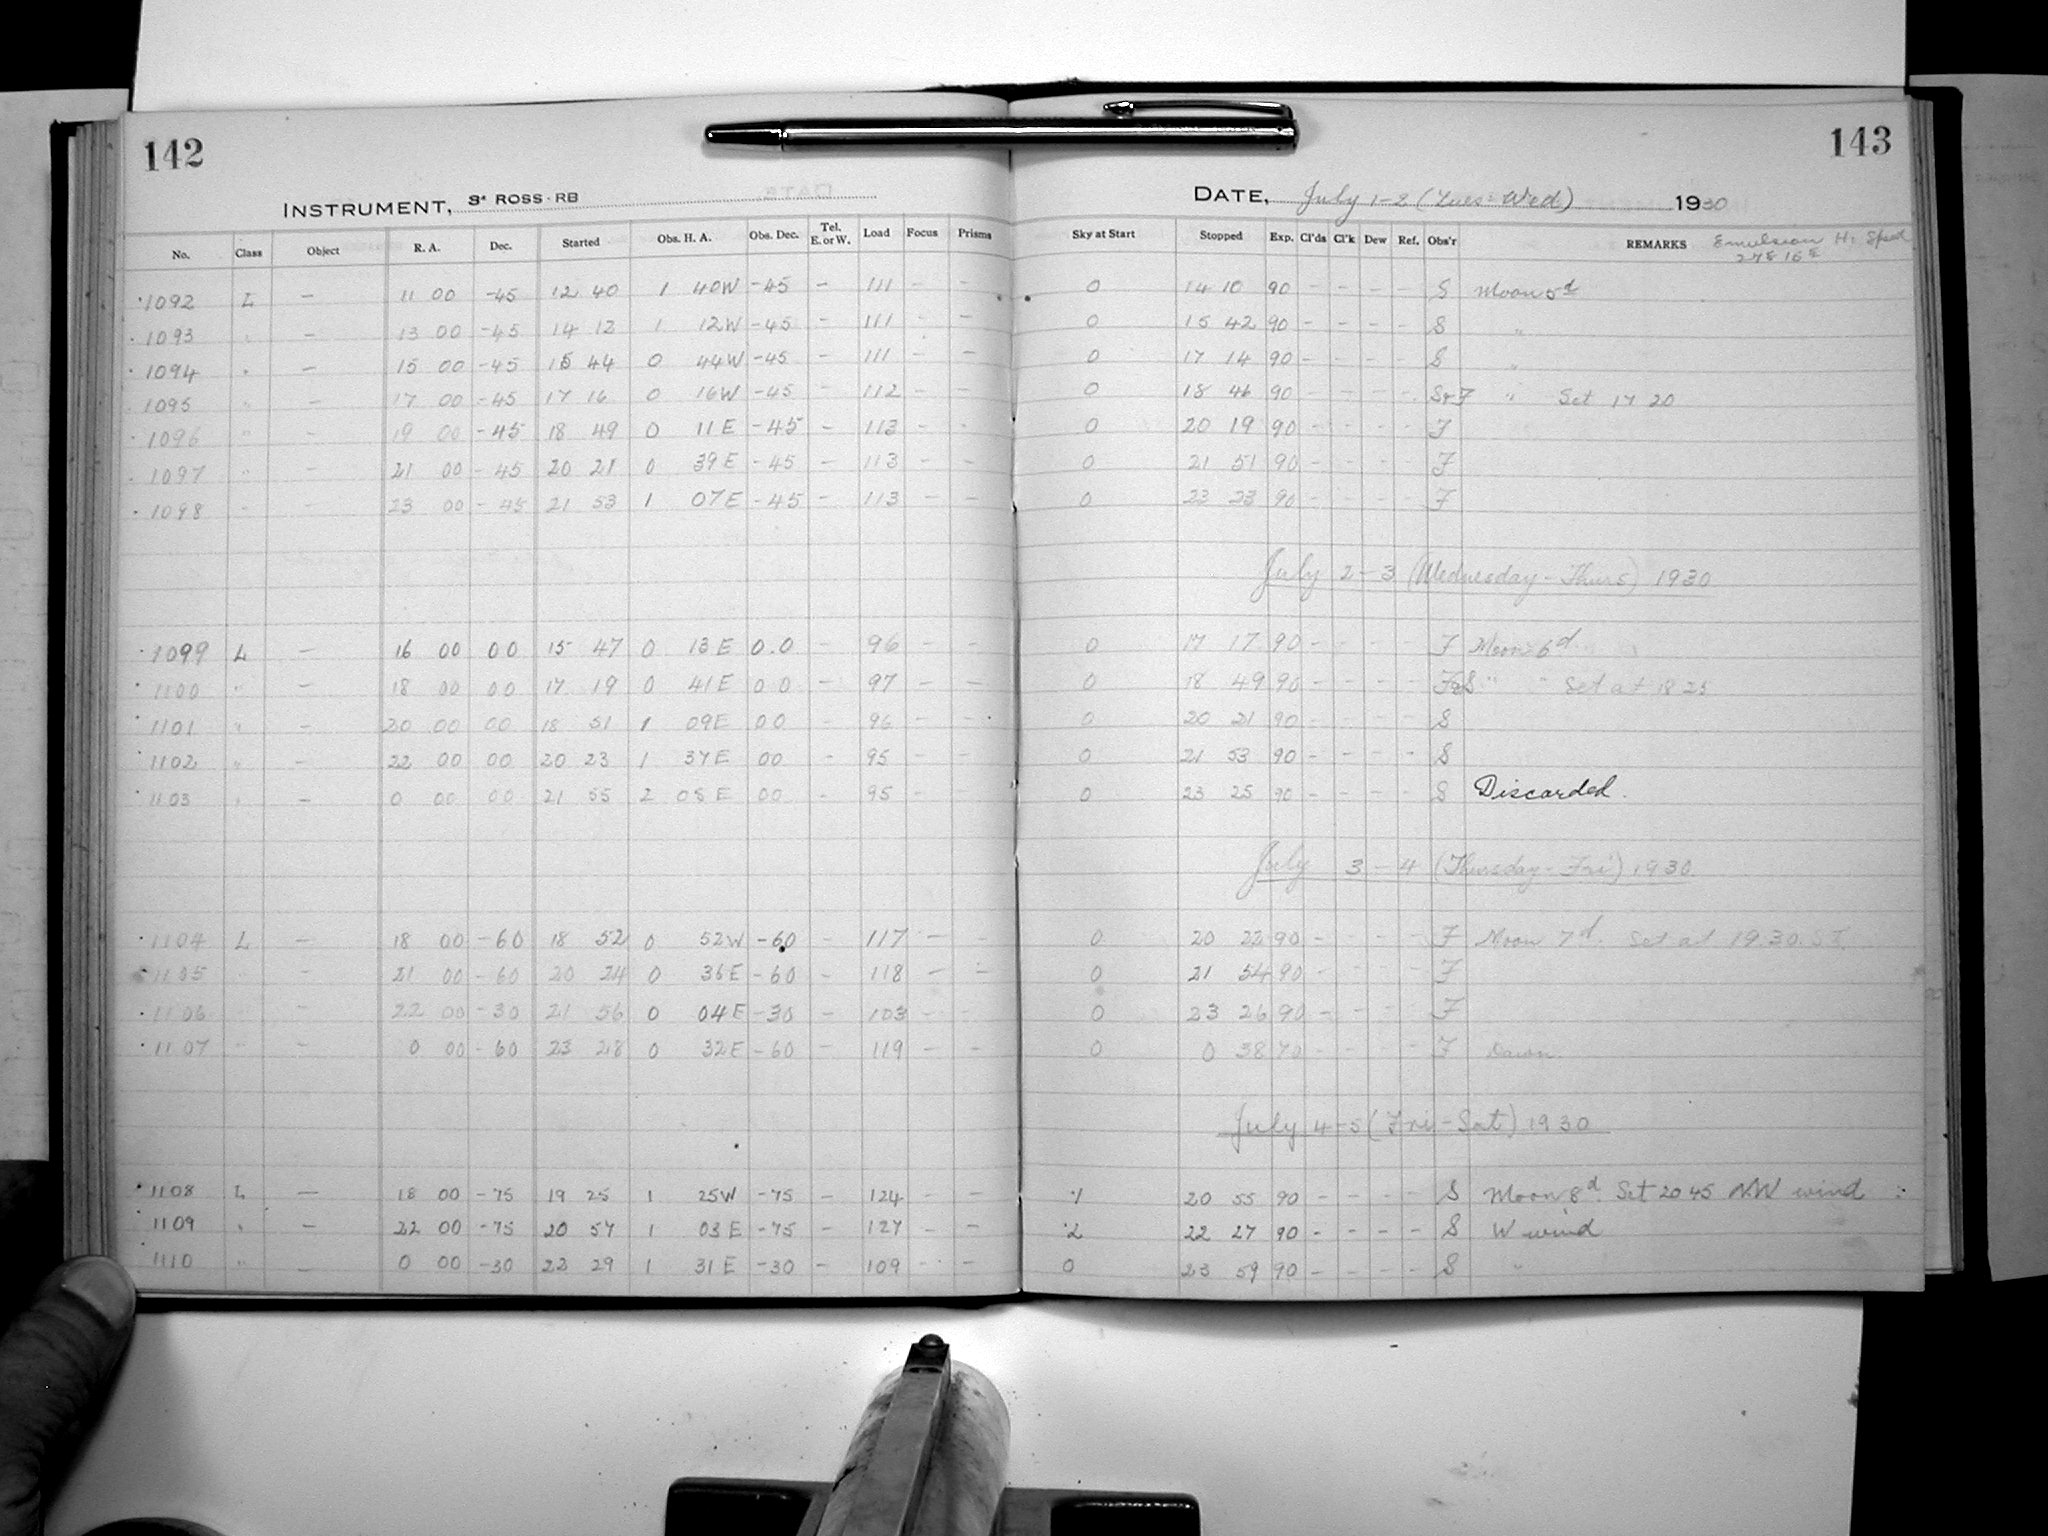 142
INSTRUMENT, 3" ROSS-RB
No. Class Object R. A. Dec. Started Obs. H. A. Obs. Dec. Tel. E. or W. Load Focus Prisms
1092 L — 11 00 -45 12 40 1 40W -45 - 111 - -
1093 " — 13 00 -45 14 12 1 12W -45 - 111 - -
1094 " — 15 00 -45 15 44 0 44W -45 - 111 - -
1095 " — 17 00 -45 17 16 0 16W -45 - 112 - -
1096 " — 19 00 -45 18 49 0 11E -45 - 113 - -
1097 " — 21 00 -45 20 21 0 39E -45 - 113 - -
1098 " — 23 00 -45 21 53 1 07E -45 - 113 - -
1099 L — 16 00 00 15 47 0 13E 0.0 - 96 - -
1100 " — 18 00 00 17 19 0 41E 00 - 97 - -
1101 " — 20 00 00 18 51 1 09E 00 - 96 - -
1102 " — 22 00 00 20 23 1 37E 00 - 95 - -
1103 " — 0 00 00 21 55 2 05E 00 - 95 - -
1104 L — 18 00 -60 18 52 0 52W -60 - 117 - -
1105 " — 21 00 -60 20 24 0 36E -60 - 118 - -
1106 " — 22 00 -30 21 56 0 04E -30 - 103 - -
1107 " — 0 00 -60 23 28 0 32E -60 - 119 - -
1108 L — 18 00 -75 19 25 1 25W -75 - 124 - -
1109 " — 22 00 -75 20 57 1 03E -75 - 127 - -
1110 " — 0 00 -30 22 29 1 31E -30 - 109 - -
143
DATE, July 1-2 (Tues-Wed) 1930
Sky at Start Stopped Exp. Cl'ds Cl'k Dew Ref. Obs'r REMARKS Emulsion Hi Speed
0 14 10 90 - - - - S Moon 5d
0 15 42 90 - - - - S "
0 17 14 90 - - - - S "
0 18 46 90 - - - - S+F " Set 17 20
0 20 19 90 - - - - F
0 21 51 90 - - - - F
0 23 23 90 - - - - F
July 2-3 (Wednesday-Thurs) 1930
0 17 17 90 - - - - F Moon 6d
0 18 49 90 - - - - F&S " " Set at 18 25
0 20 21 90 - - - - S
0 21 53 90 - - - - S
0 23 25 90 - - - - S Discarded.
July 3-4 (Thursday-Fri) 1930
0 20 22 90 - - - - F Moon 7d. Set at 19.30 S.T.
0 21 54 90 - - - - F
0 23 26 90 - - - - F
0 0 38 70 - - - - F Dawn.
July 4-5 (Fri-Sat) 1930
.1 20 55 90 - - - - S Moon 8d. Set 20 45 NW wind
.2 22 27 90 - - - - S W wind
0 23 59 90 - - - - S "